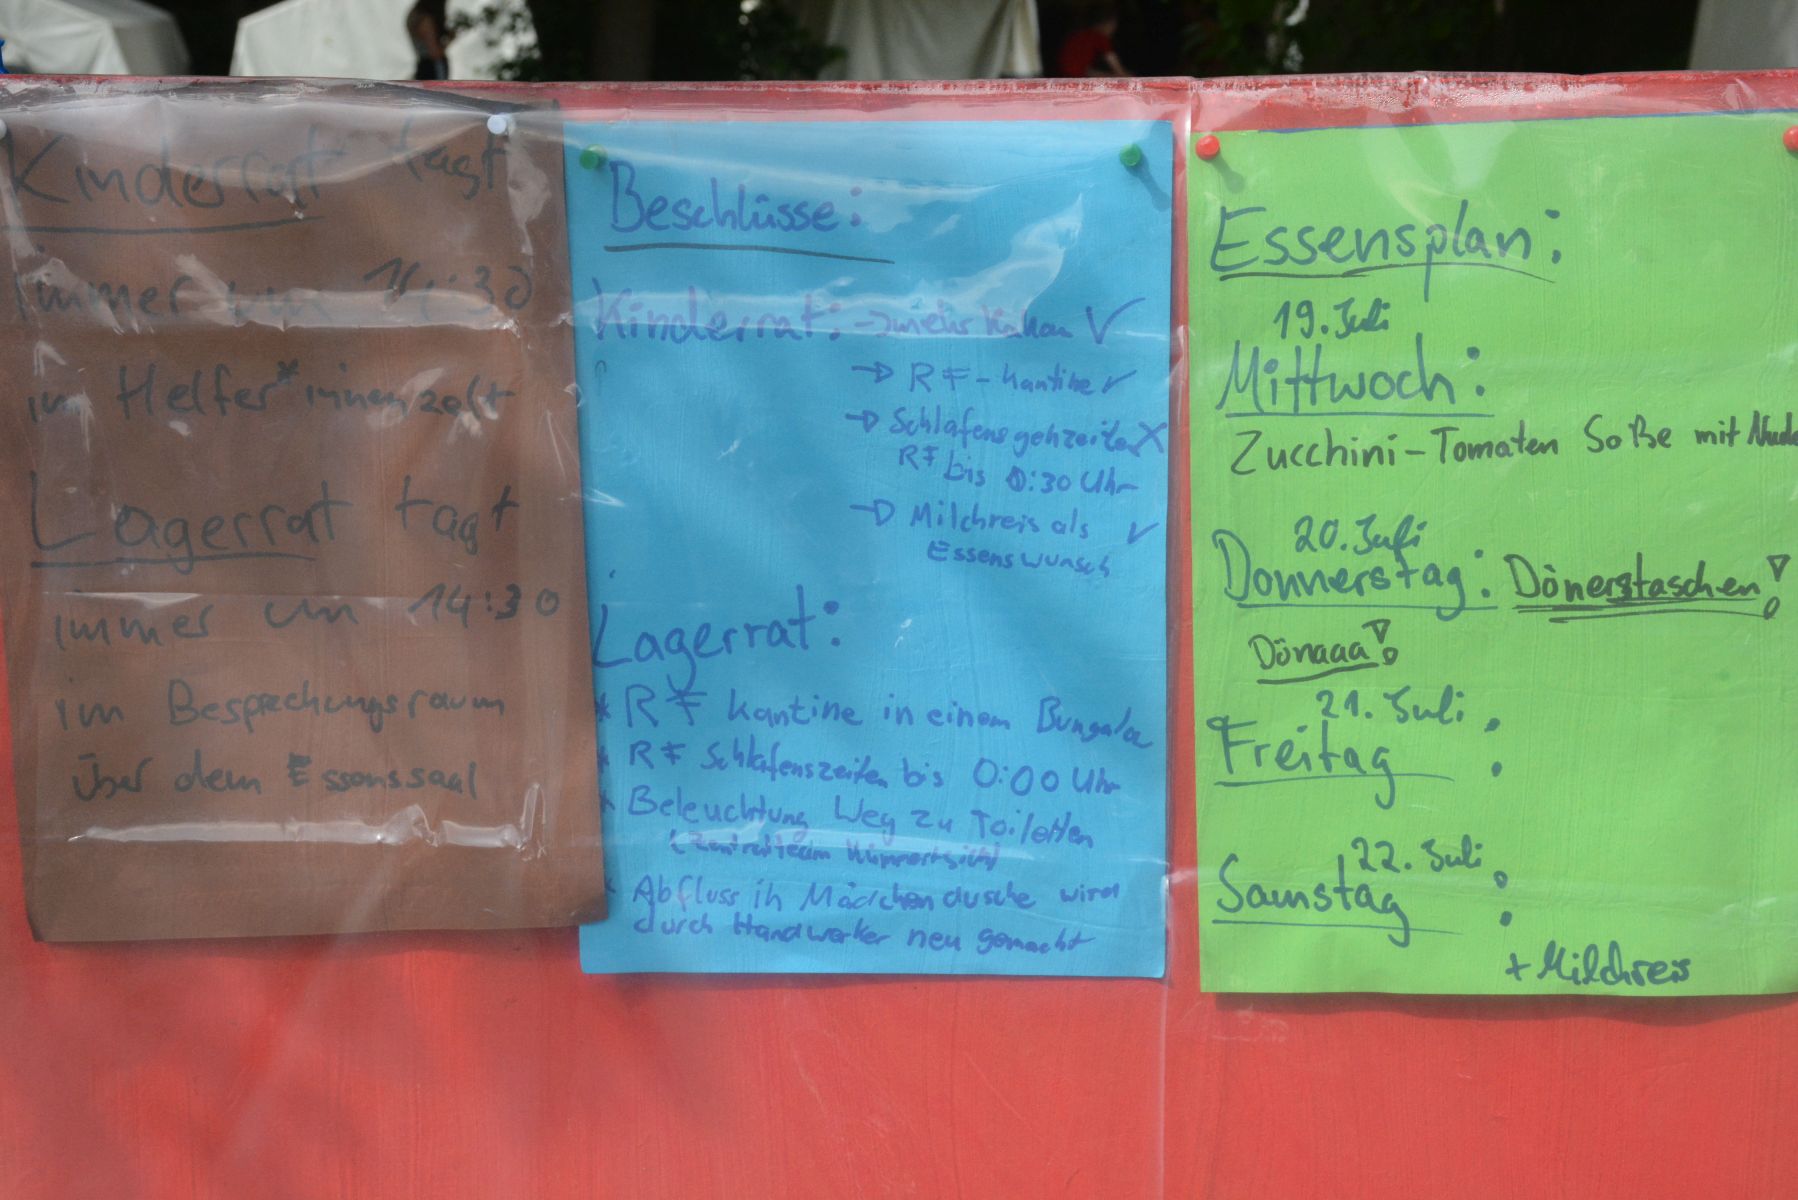 Kinderrat tagt
immer um 14:30
im Helfer*innenzelt
Lagerrat tagt
immer um 14:30
im Besprechungsraum
über dem Essenssaal
Beschlüsse:
Kinderrat: → mehr ✓
→ RF-Kantine ✓
→ Schlafensgehzeiten X
RF bis 0:30 Uhr
→ Milchreis als ✓
Essenswunsch
Lagerrat:
* RF Kantine in einem Bungalow
* RF Schlafenszeiten bis 0:00 Uhr
* Beleuchtung Weg zu Toiletten
(Zentralteam kümmert sich)
* Abfluss in Mädchendusche wird
durch Handwerker neu gemacht
Essensplan:
19. Juli
Mittwoch:
Zucchini-Tomaten Soße mit Nude
20. Juli
Donnerstag: Dönerstaschen!
Dönaaa!
21. Juli
Freitag:
22. Juli
Samstag:
+ Milchreis